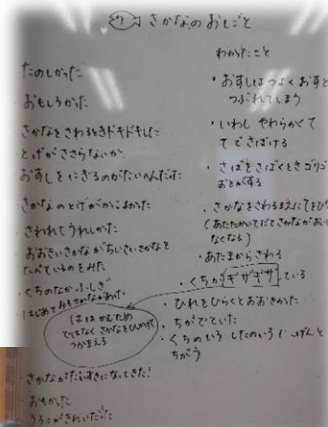 さかなのおしごと
たのしかった
おもしろかった
さかなをさわるときドキドキした
とげがささらないか
おすしをにぎるのがたいへんだった
さかなのとげがかっこよかった
さわれてうれしかった
おおきいさかながちいさいさかなを
たべているのをみた
くちのなかふしぎ
はじめてみるさかながあった
はは かむため
ではなく さかなをひっかけて
つかまえる
さかながだいすきになってきた!
おもかった
うろこがきれいだった
わかったこと
・おすしはつよくおすと
つぶれてしまう
・いわし やわらかくて
てでさばける
・さばをさばくときゴリゴリ
おとがする
・さかなをさわるまえにてをひ
(あたたかいてだとさかながあ
なくなる)
・あたまからさわる
・くちがギザギザしている
・ひれをひらくとおおきかった
・ちがでていた
・くちのいろ したのいろ にんげんと
ちがう